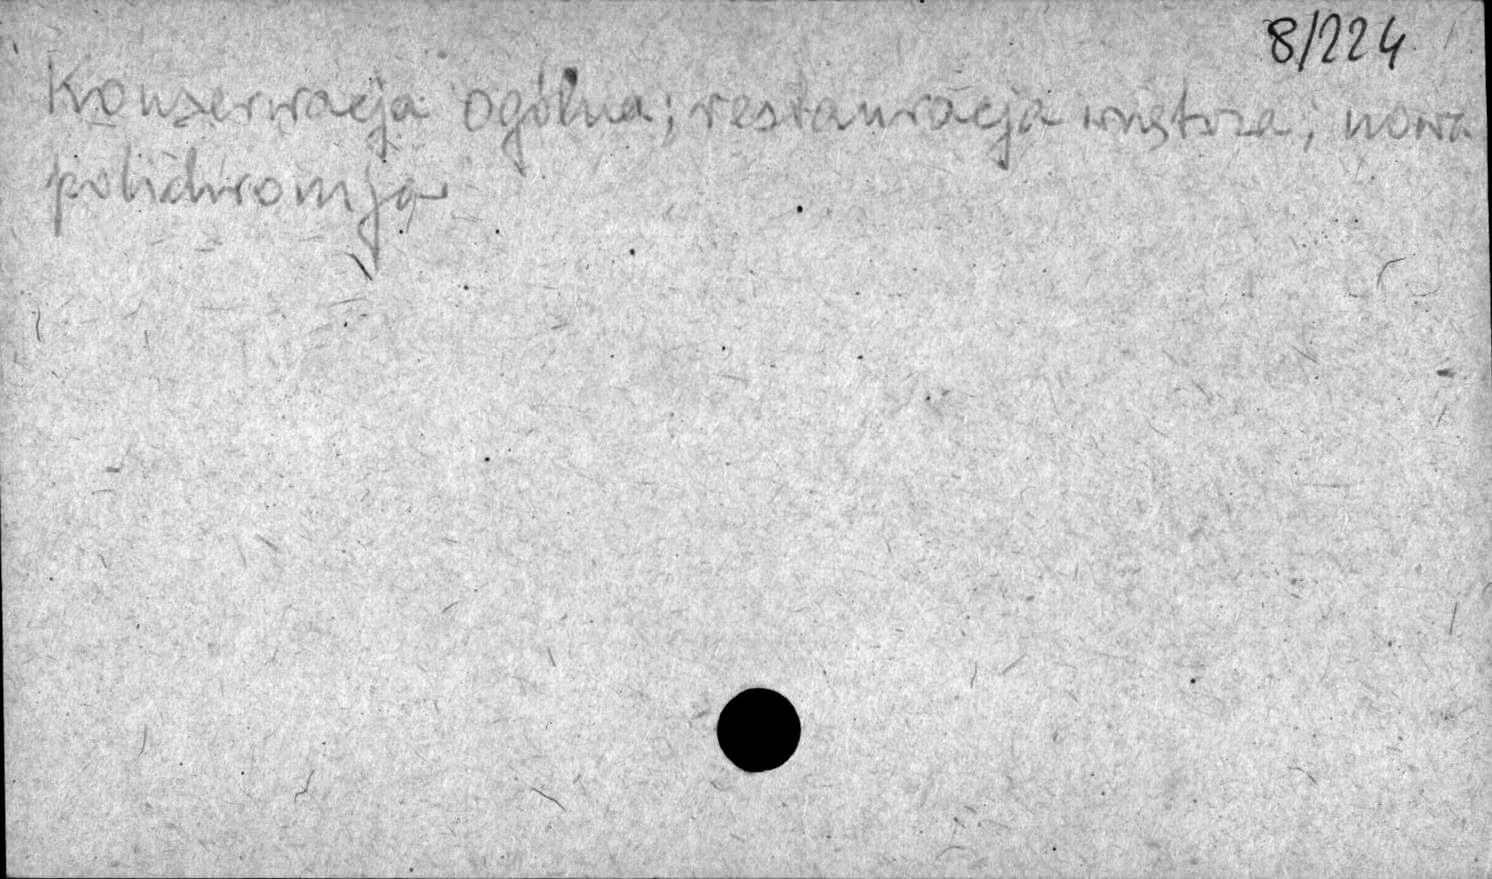 8/224
Konserwacja ogólna; restauracja wnętrza; nowa
polichromja